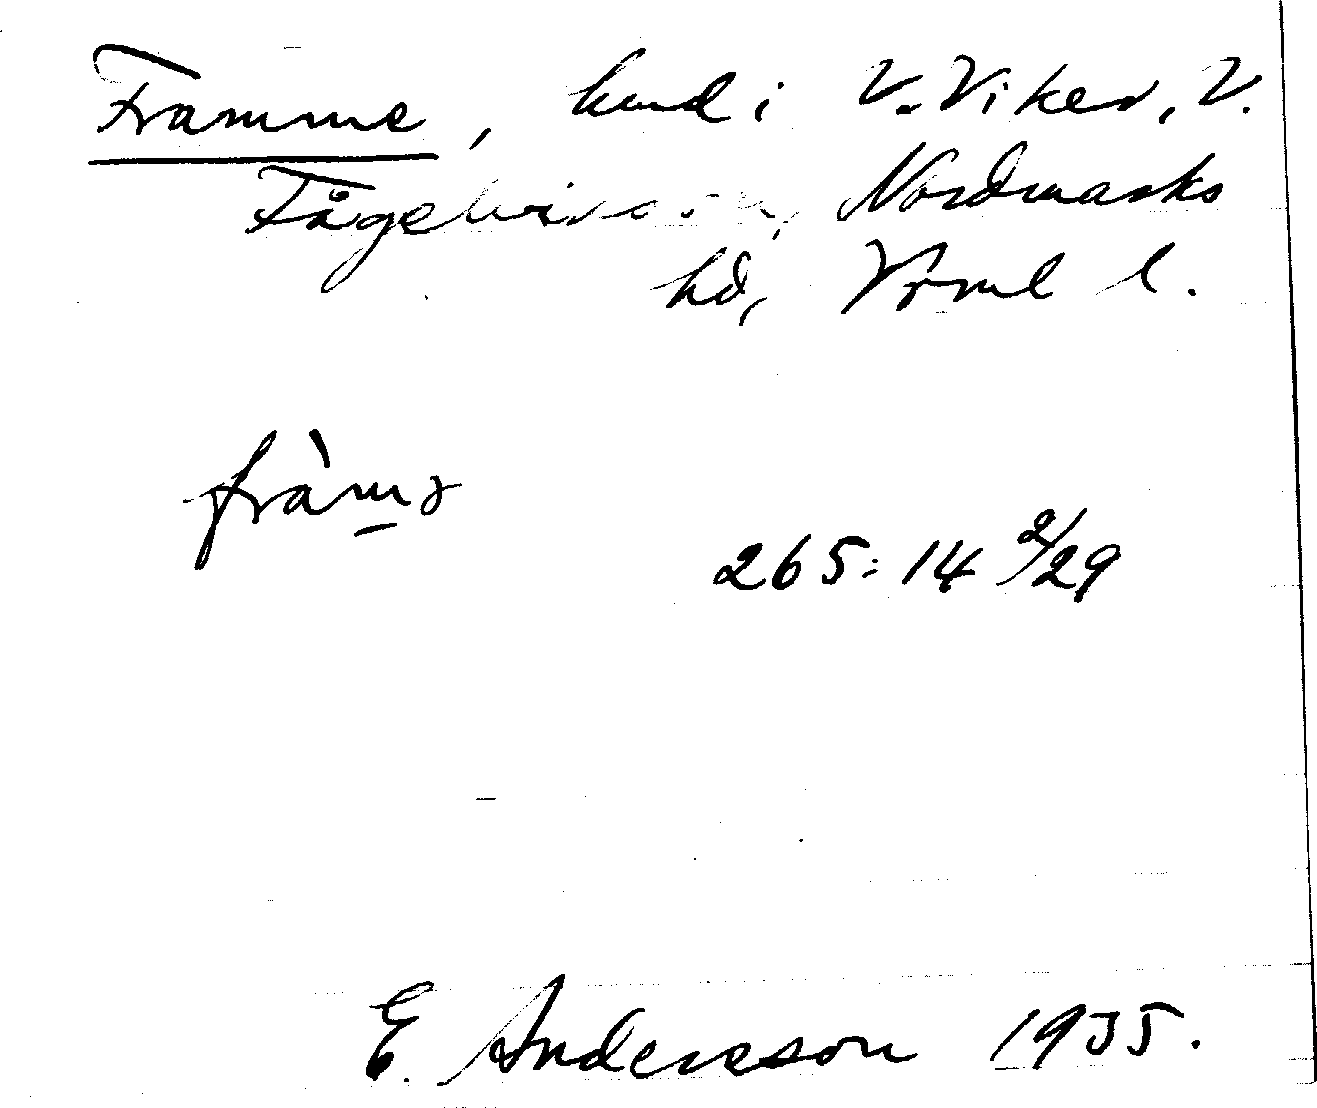 Framme, hund i V. Viker, V.
Fågelviks sn, Nordmarks
hd, Vrml l.
fràmə
265:14 2/29
E. Andersson 1935.